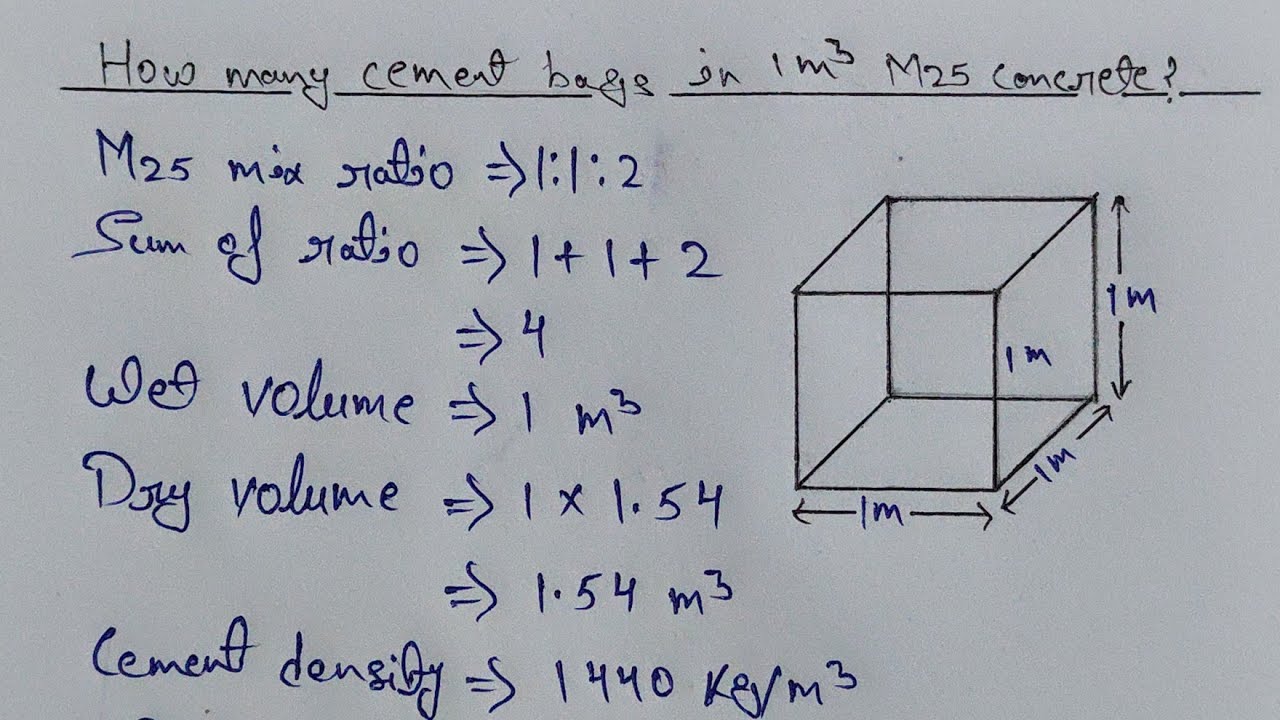 How many cement bags in 1m³ M25 concrete?
M25 mix ratio ⇒ 1:1:2
Sum of ratio ⇒ 1+1+2
⇒ 4
Wet volume ⇒ 1 m³
Dry volume ⇒ 1 × 1.54
⇒ 1.54 m³
Cement density ⇒ 1440 Kg/m³
1m
1m
1m
1m